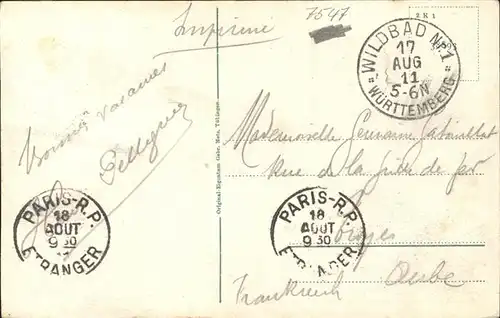 Imprimé
7547
2 K 1
WILDBAD Nr. 1
17
AUG
11
5-6N
WÜRTTEMBERG
Bonnes vacances
Original-Eigentum Gebr. Metz, Tübingen
Mademoiselle Germaine
Rue de la
PARIS-R.P.
18
AOUT
9 30
ETRANGER
PARIS-R.P.
18
AOUT
9 30
ETRANGER
Troyes
Aube
Frankreich